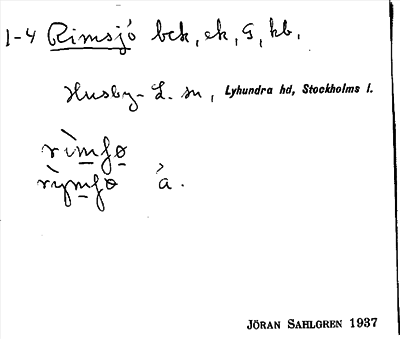 1-4 Rimsjö bek, ek, G, kb.
Husby-L. sn, Lyhundra hd, Stockholms l.
rìmʃø
rỳmʃø à.
JÖRAN SAHLGREN 1937